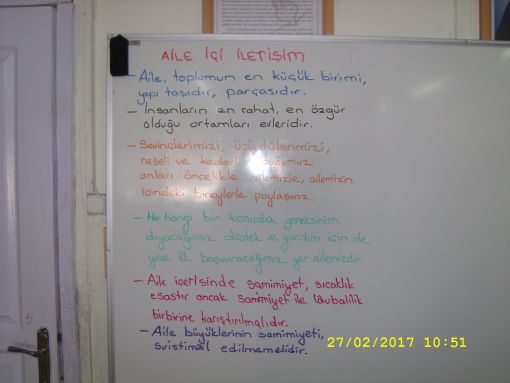 AİLE İÇİ İLETİŞİM
- Aile, toplumun en küçük birimi,
yapı taşıdır, parçasıdır.
- İnsanların en rahat, en özgür
olduğu ortamları evleridir.
- Sevinçlerimizi, üzüntülerimizi,
neşeli ve kederli olduğumuz
anları öncelikle ailemizle, ailemizin
içindeki bireylerle paylaşırız.
- hangi bir konuda gereksinim
duyacağımız destek ve yardım için de
yine ilk başvuracağımız yer ailemizdir.
- Aile içerisinde samimiyet, sıcaklık
esastır ancak samimiyet ile lâubalilik
birbirine karıştırılmalıdır.
- Aile büyüklerinin samimiyeti,
suistimal edilmemelidir.
27/02/2017 10:51